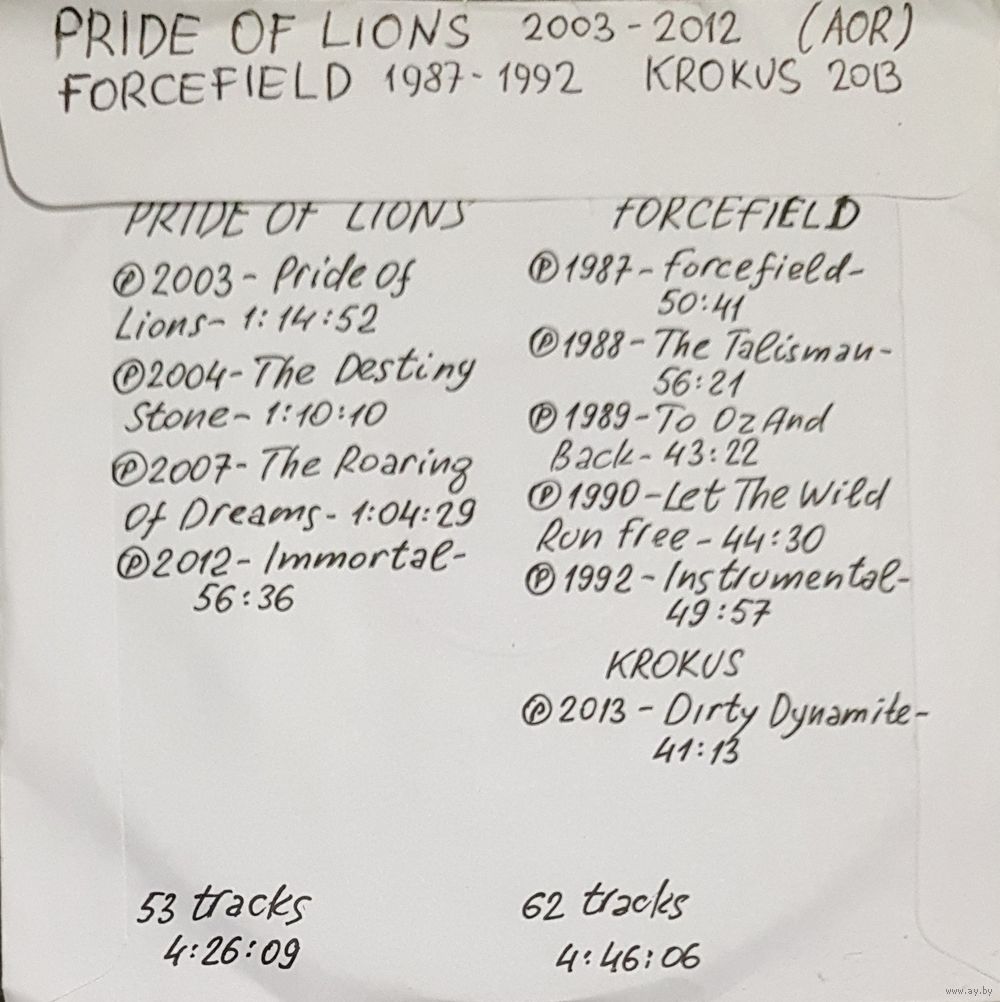 PRIDE OF LIONS 2003-2012 (AOR)
FORCEFIELD 1987-1992 KROKUS 2013
PRIDE OF LIONS
℗2003- Pride Of
Lions- 1:14:52
℗2004- The Destiny
Stone- 1:10:10
℗2007- The Roaring
Of Dreams- 1:04:29
℗2012- Immortal-
56:36
53 tracks
4:26:09
FORCEFIELD
℗1987- Forcefield-
50:41
℗1988- The Talisman-
56:21
℗1989- To Oz And
Back- 43:22
℗1990- Let The Wild
Run Free- 44:30
℗1992- Instrumental-
49:57
KROKUS
℗2013- Dirty Dynamite-
41:13
62 tracks
4:46:06
www.ay.by